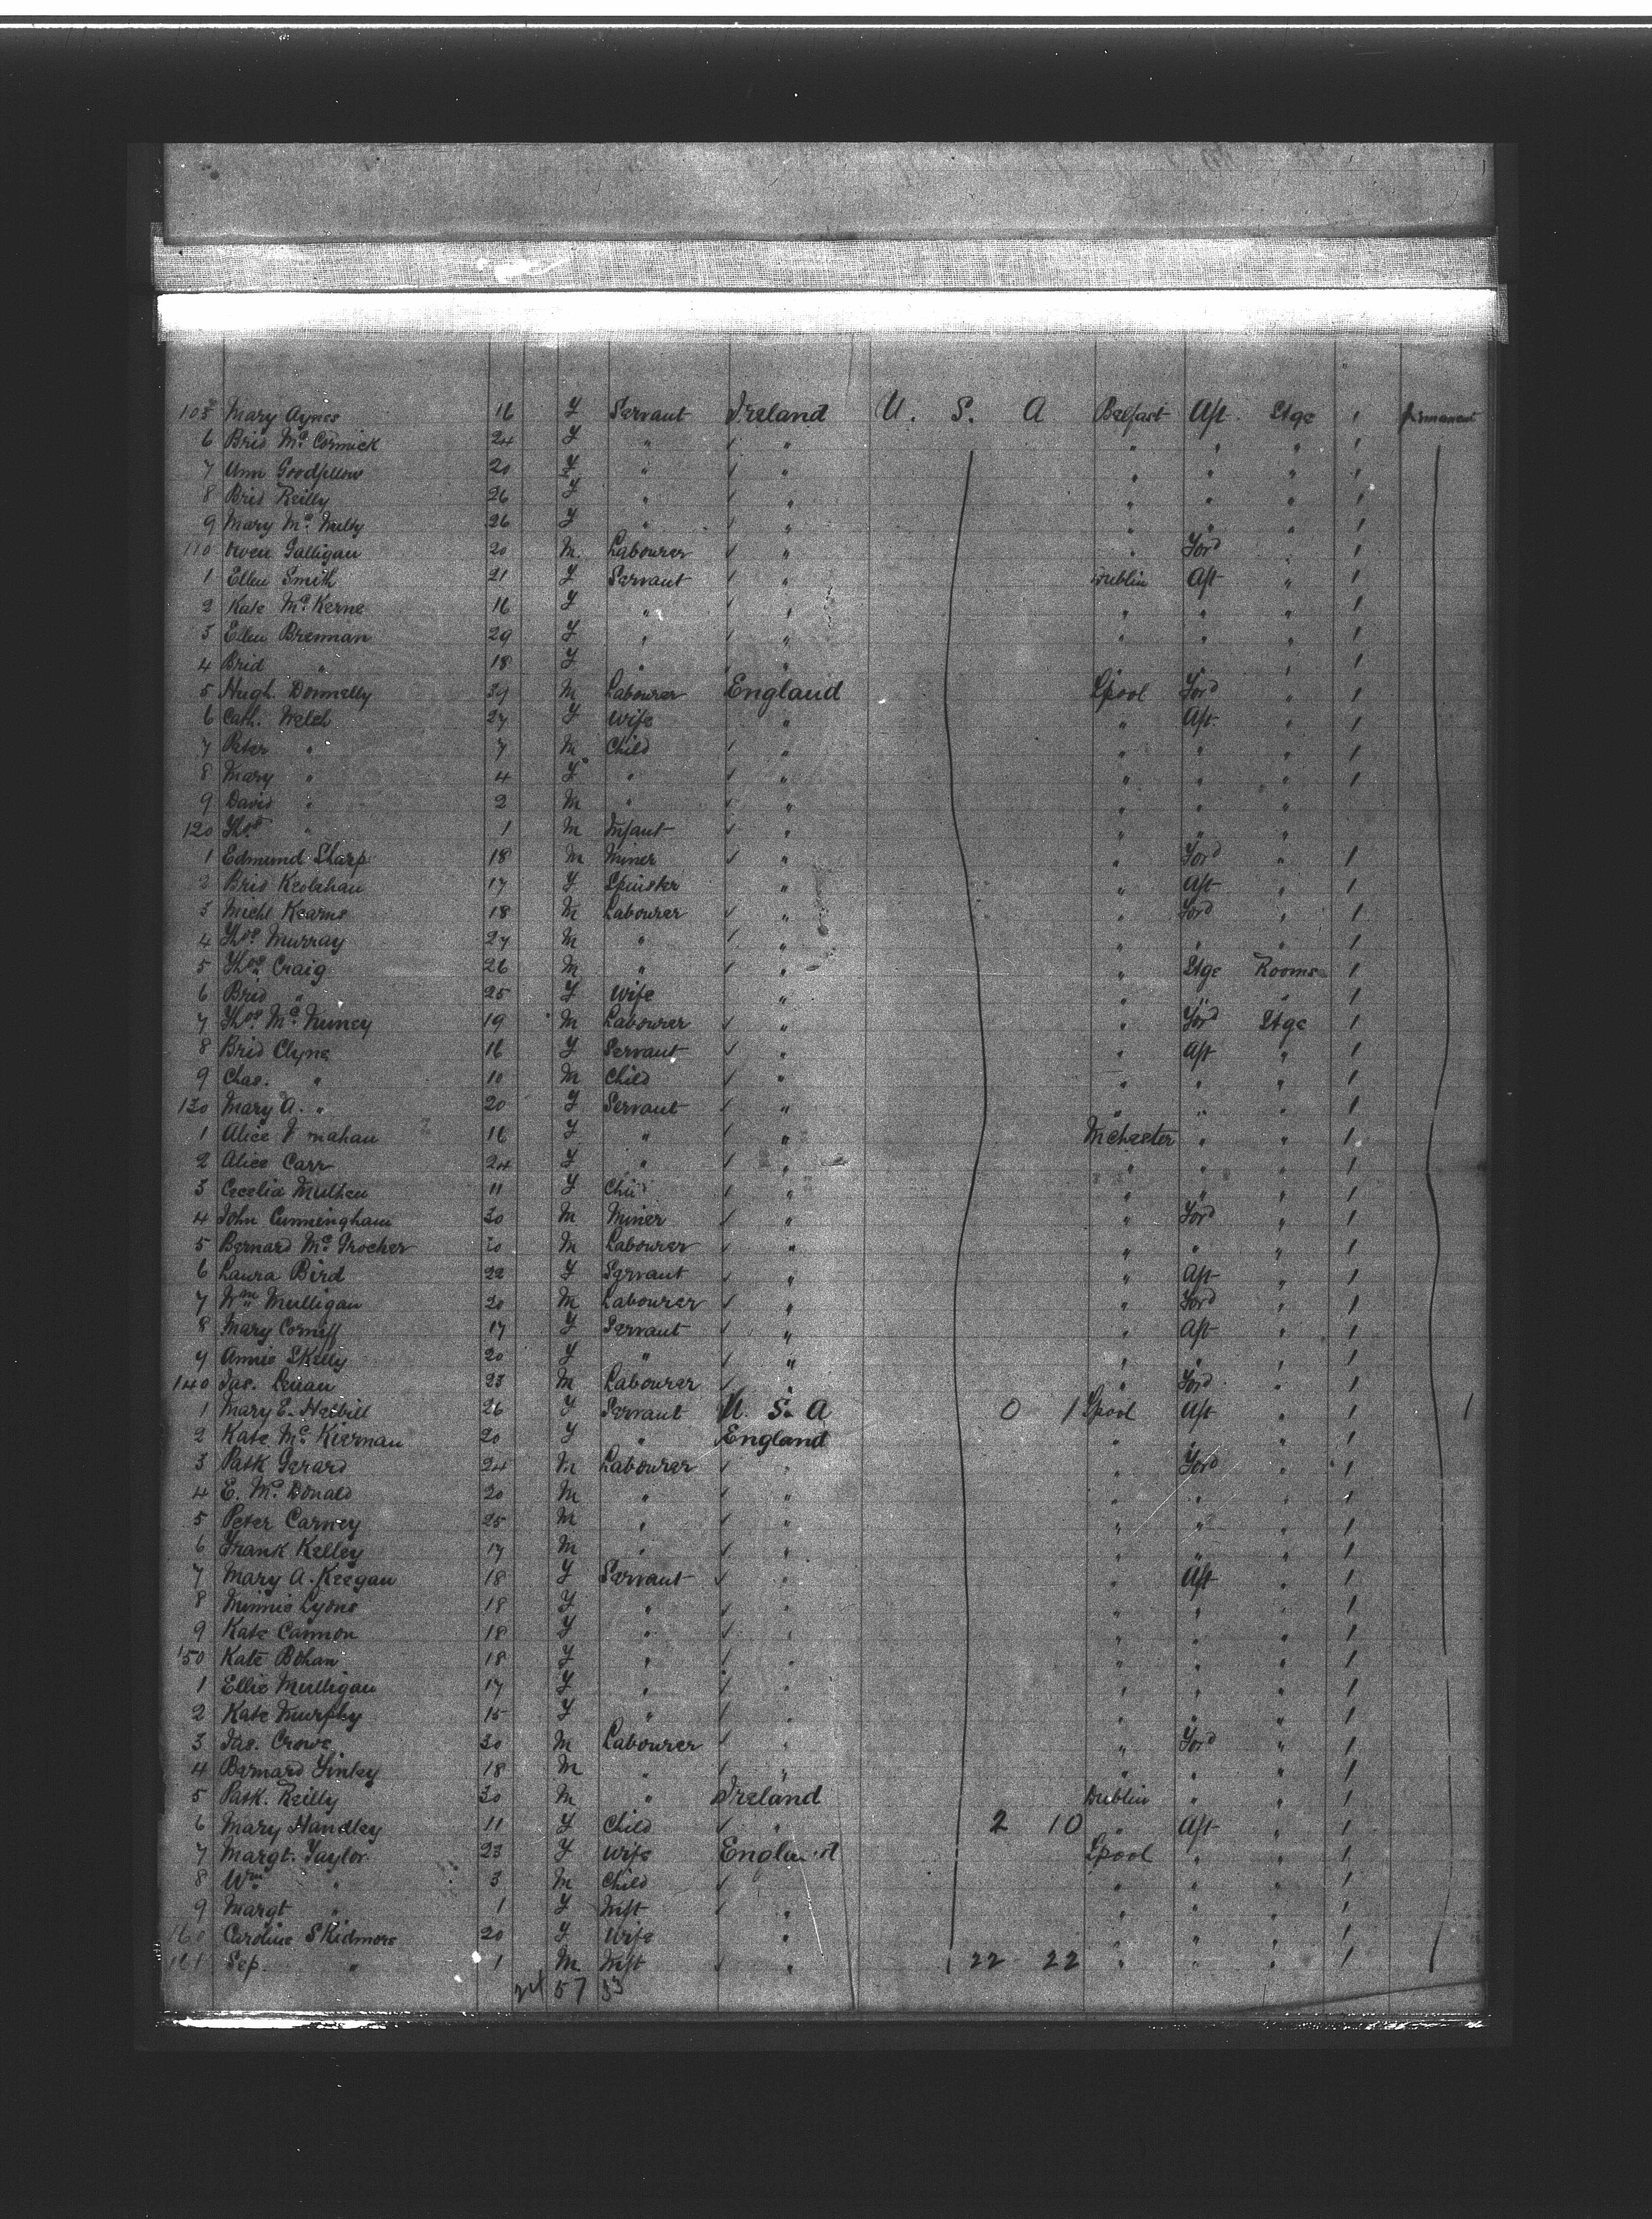 105 Mary Aynes 16 F Servant Ireland U. S. A Belfast Aft Stge 1 permanent
6 Brid Mc Cormick 24 F " " " " " 1
7 Ann Goodfellow 20 F " " " " " 1
8 Brid Reilly 26 F " " " " " 1
9 Mary Mc Nulty 26 F " " " " " 1
110 Owen Galligan 20 M. Labourer " " Ford " 1
1 Ellen Smith 21 F Servant " Dublin Aft " 1
2 Kate Mc Kerne 16 F " " " " " 1
3 Ellen Brennan 29 F " " " " " 1
4 Brid " 18 F " " " " " 1
5 Hugh Donnelly 39 M Labourer England Lpool Ford " 1
6 Cath. Welch 27 F Wife " " Aft. " 1
7 Peter " 7 M Child " " " " 1
8 Mary " 4 F " " " " " 1
9 David " 2 M " " " " "
120 Thos " 1 M Infant " " " "
1 Edmund Sharp 18 M Miner " " Ford " 1
2 Brid 17 F Spinster " " Aft " 1
3 Michl Kearns 18 M Labourer " " Ford " 1
4 Thos Murray 27 M " " " " " 1
5 Thos Craig 26 M " " " Stge Rooms 1
6 Brid " 25 F Wife " " " " 1
7 Thos Mc Nuney 19 M Labourer " " Ford Stge 1
8 Brid Clyne 16 F Servant " " Aft " 1
9 Chas. " 10 M Child " " " " 1
130 Mary A. " 20 F Servant " " " " 1
1 Alice mahan 16 F " " Mchester " " 1
2 Alice Carr 24 F " " " " " 1
3 Cecelia Mulhen 11 F Child " " " " 1
4 John Cunningham 30 M Miner " " Ford " 1
5 Bernard Mc Grocher 20 M Labourer " " " " 1
6 Laura Bird 22 F Servant " " Aft " 1
7 Wm Mulligan 20 M Labourer " " Ford " 1
8 Mary Corniff 17 F Servant " " Aft " 1
9 Annie Skelly 20 F " " " " " 1
140 Jas. Lenan 23 M Labourer " " Ford " 1
1 Mary E. 26 F Servant U. S. A 0 1 Lpool Aft " 1 1
2 Kate Mc Kiernan 20 F " England " " " 1
3 Patk Gerard 24 M Labourer " " Ford " 1
4 E. Mc Donald 20 M " " " " " 1
5 Peter Carney 25 M " " " " " 1
6 Frank Kelley 17 M " " " " " 1
7 Mary A. Keegan 18 F Servant " " Aft " 1
8 Minnie Lyons 18 F " " " " " 1
9 Kate Cannon 18 F " " " " " 1
150 Kate Bohan 18 F " " " " " 1
1 Ellie Mulligan 17 F " " " " " 1
2 Kate Murphy 15 F " " " " " 1
3 Jas. Crowe 30 M Labourer " " Ford " 1
4 Bernard Finley 18 M " " " " " 1
5 Patk. Reilly 30 M " Ireland Dublin " " 1
6 Mary Handley 11 F Child " 2 10 " Aft " 1
7 Margt. Taylor 23 F Wife England Lpool " " 1
8 Wm " 3 M Child " " " " 1
9 Margt " 1 F Inft " " " " 1
160 Caroline Skidmore 20 F Wife " " " " 1
161 Sep. " 1 M Inft " 22 22 " " " 1
24 57 33